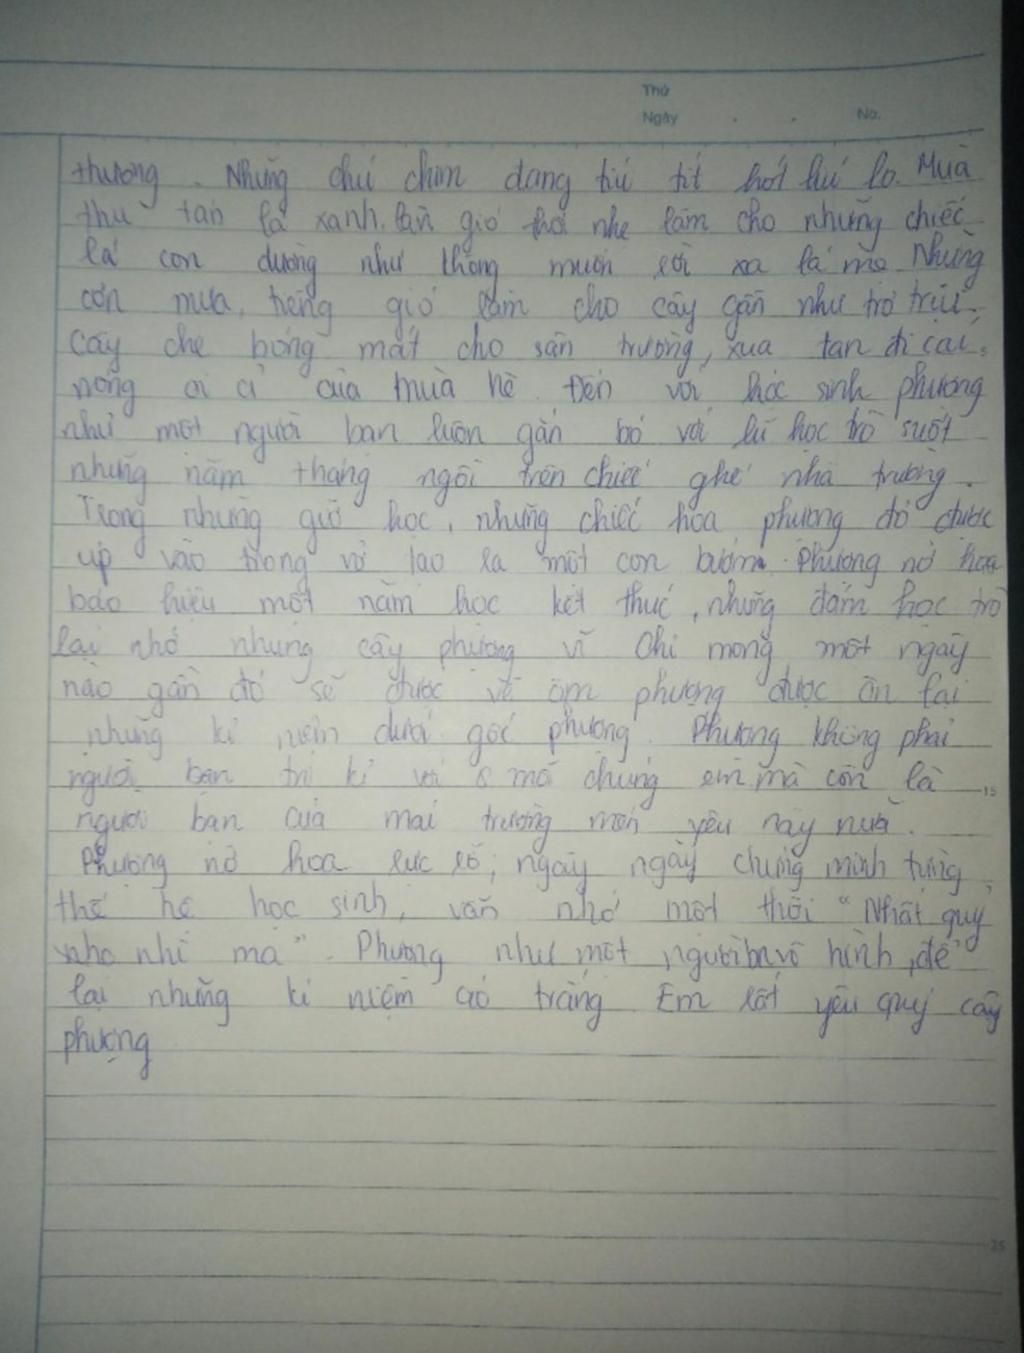 Thứ
Ngày . . No.
thương. Những chú chim đang tíu tít hót líu lo. Mùa
thu tán lá xanh. Làn gió thổi nhẹ làm cho những chiếc
lá con dường như không muốn rời xa lá mẹ. Những
cơn mưa, tiếng gió làm cho cây gần như trơ trụi.
Cây che bóng mát cho sân trường, xua tan đi cái
nóng oi ả của mùa hè. Đến với học sinh phượng
như một người bạn luôn gắn bó với lũ học trò suốt
những năm tháng ngồi trên chiếc ghế nhà trường.
Trong những giờ học, những chiếc hoa phượng đỏ được
ụp vào trong vở tạo ra một con bướm. Phượng nở hoa
báo hiệu một năm học kết thúc, những đám học trò
lại nhớ những cây phượng vĩ. Chỉ mong một ngày
nào gần đó sẽ được về ôm phượng được ôn lại
những kỉ niệm dưới gốc phượng. Phượng không phải
người bạn tri kỉ với mỗi chúng em mà còn là
15
người bạn của mái trường mến yêu này nữa.
Phượng nở hoa rực rỡ, ngày ngày chứng minh từng
thế hệ học sinh, vẫn nhớ một thời "Nhất quỷ
nhì ma". Phượng như một người vô hình, để
lại những kỉ niệm áo trắng. Em rất yêu quý cây
phượng
25